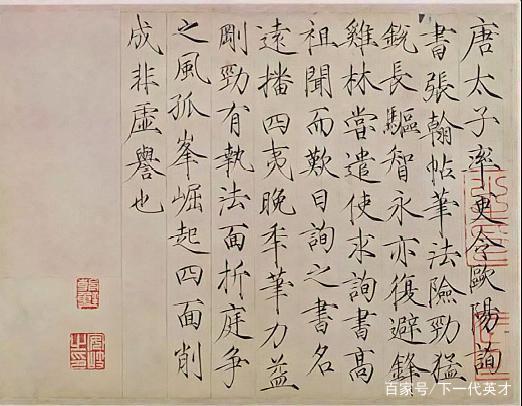 唐太子率更令歐陽詢
書張翰帖筆法險勁猛
銳長驅智永亦復避鋒
雞林嘗遣使求詢書高
祖聞而歎曰詢之書名
遠播四夷晚年筆力益
剛勁有執法面折庭爭
之風孤峯崛起四面削
成非虛譽也
百家号/下一代英才